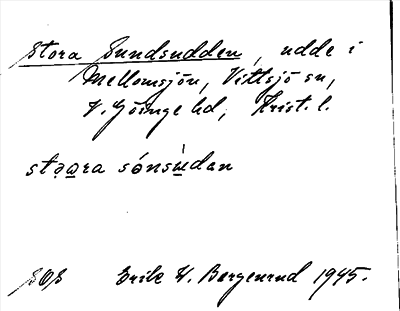 Stora Sundsudden, udde i
Mellomsjön, Vittsjö sn,
V. Göinge hd, Krist. l.
stə̣a̲ra sónsẁ̲dan
SOS Erik W. Bergenrud 1945.